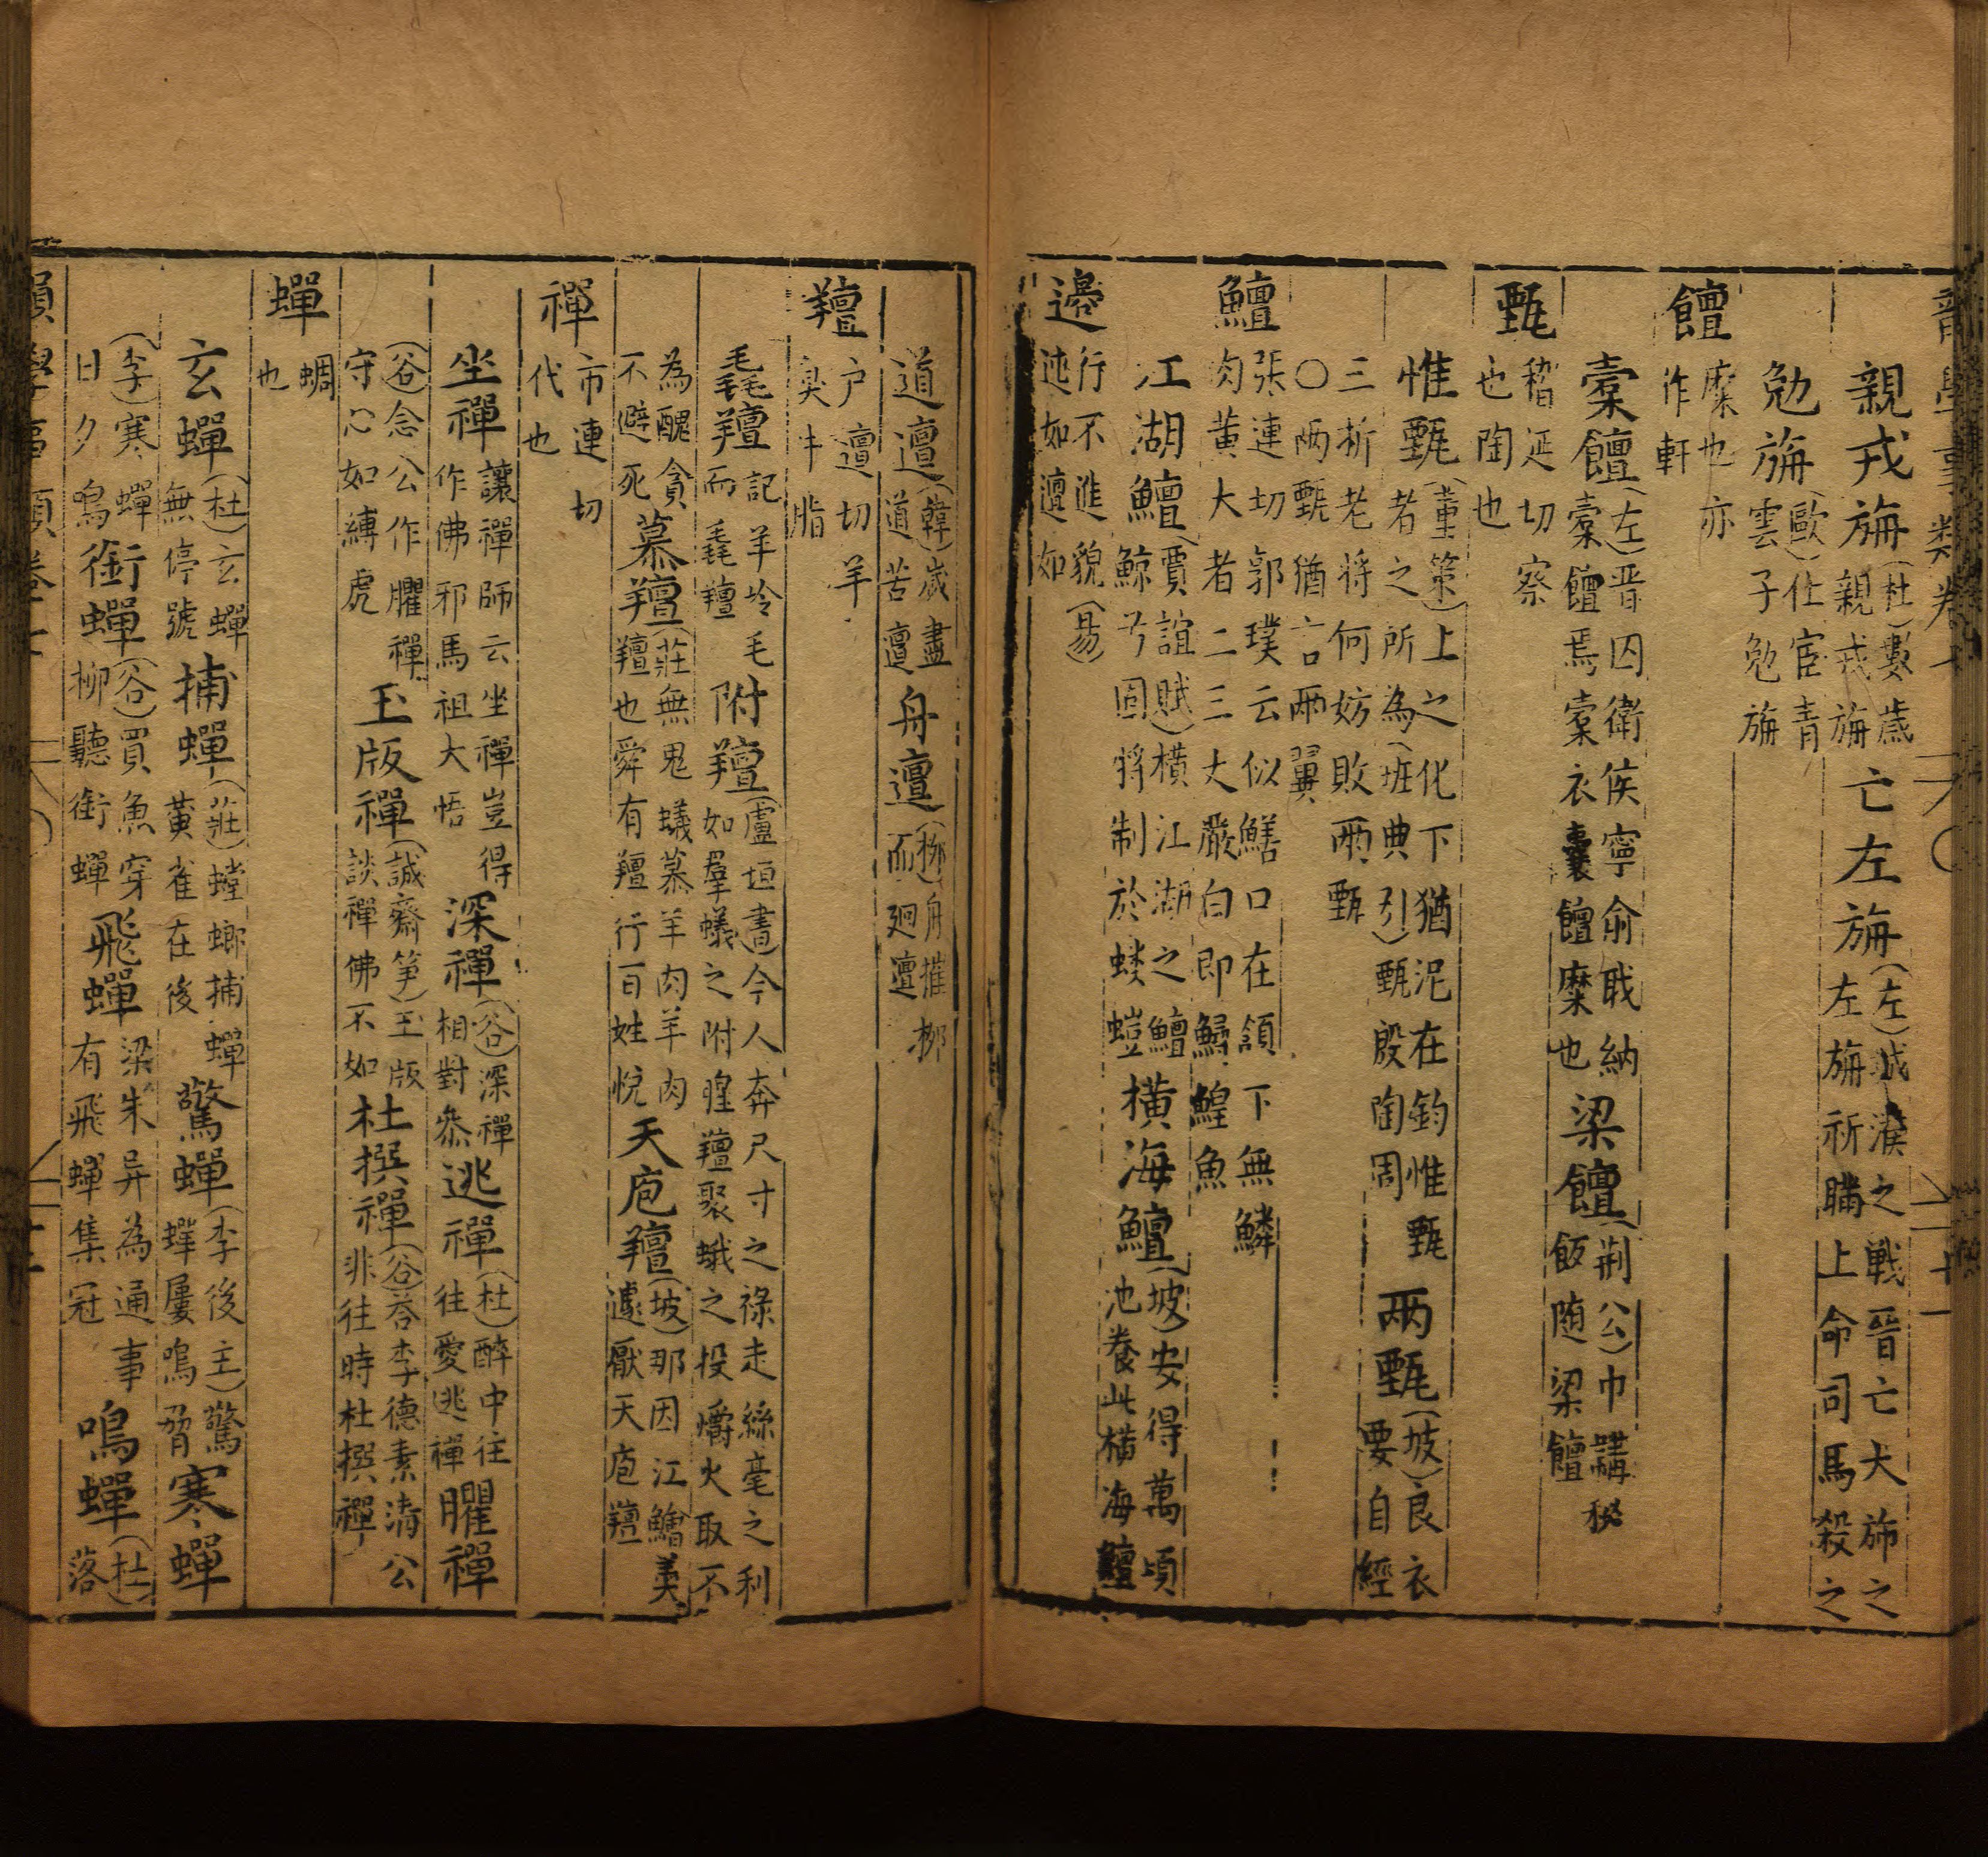 親戎旃(杜)數歲親戎旃亡左旃(左)城濮之戰晉亡大旆之左旃祈瞞上命司馬殺之
勉旃(歐)仕宦青雲子勉旃
饘糜也亦作𩜾
橐饘(左)晉囚衛侯寧俞職納橐饘焉橐衣囊饘糜也梁饘(荆公)巾韝秘飯随梁饘
甄稽延切察也陶也
惟甄(董策)上之化下猶泥在鈞惟甄者之所為(班典引)甄殷陶周兩甄(坡)良衣要自經
三折老將何妨敗兩甄〇兩甄猶言兩翼
鱣張連切郭璞云似鱔口在頷下無鱗肉黄大者二三丈嚴白即鱘鰉魚
江湖鱣(賈誼賦)横江湖之鱣鯨兮固將制於螻螘横海鱣(坡)安得萬頃池養此横海鱣
邅行不進貌(易)迍如邅如
道邅(韓)歲盡道苦邅舟邅(柳)舟摧柳而廻邅
羶户邅切羊臭牛脂
毳羶記羊泠毛而毳羶附羶(盧垣書)今人奔尺寸之祿走絲毫之利如羣蟻之附腥羶聚蛾之投爝火取不
為醜貪不避死慕羶(莊無鬼)蟻慕羊肉羊肉羶也舜有羶行百姓悦天庖羶(坡)那因江鱠美遽厭天庖羶
禪市連切代也
坐禪讓禪師云坐禪豈得作佛邪馬祖大悟深禪(谷)深禪相對叅逃禪(杜)醉中往往愛逃禪臞禪
(谷)念公作臞禪守心如縛虎玉版禪(誠齋笋)玉版談禪佛不如杜撰禪(谷)荅李德素清公非往時杜撰禪
蟬蜩也
玄蟬(杜)玄蟬無停號捕蟬(莊)螳螂捕蟬黄雀在後驚蟬(李後主)驚蟬屢鳴胷寒蟬
(李)寒蟬日夕鳴銜蟬(谷)買魚穿柳聽銜蟬飛蟬梁朱异為通事有飛蟬集冠鳴蟬(杜)落